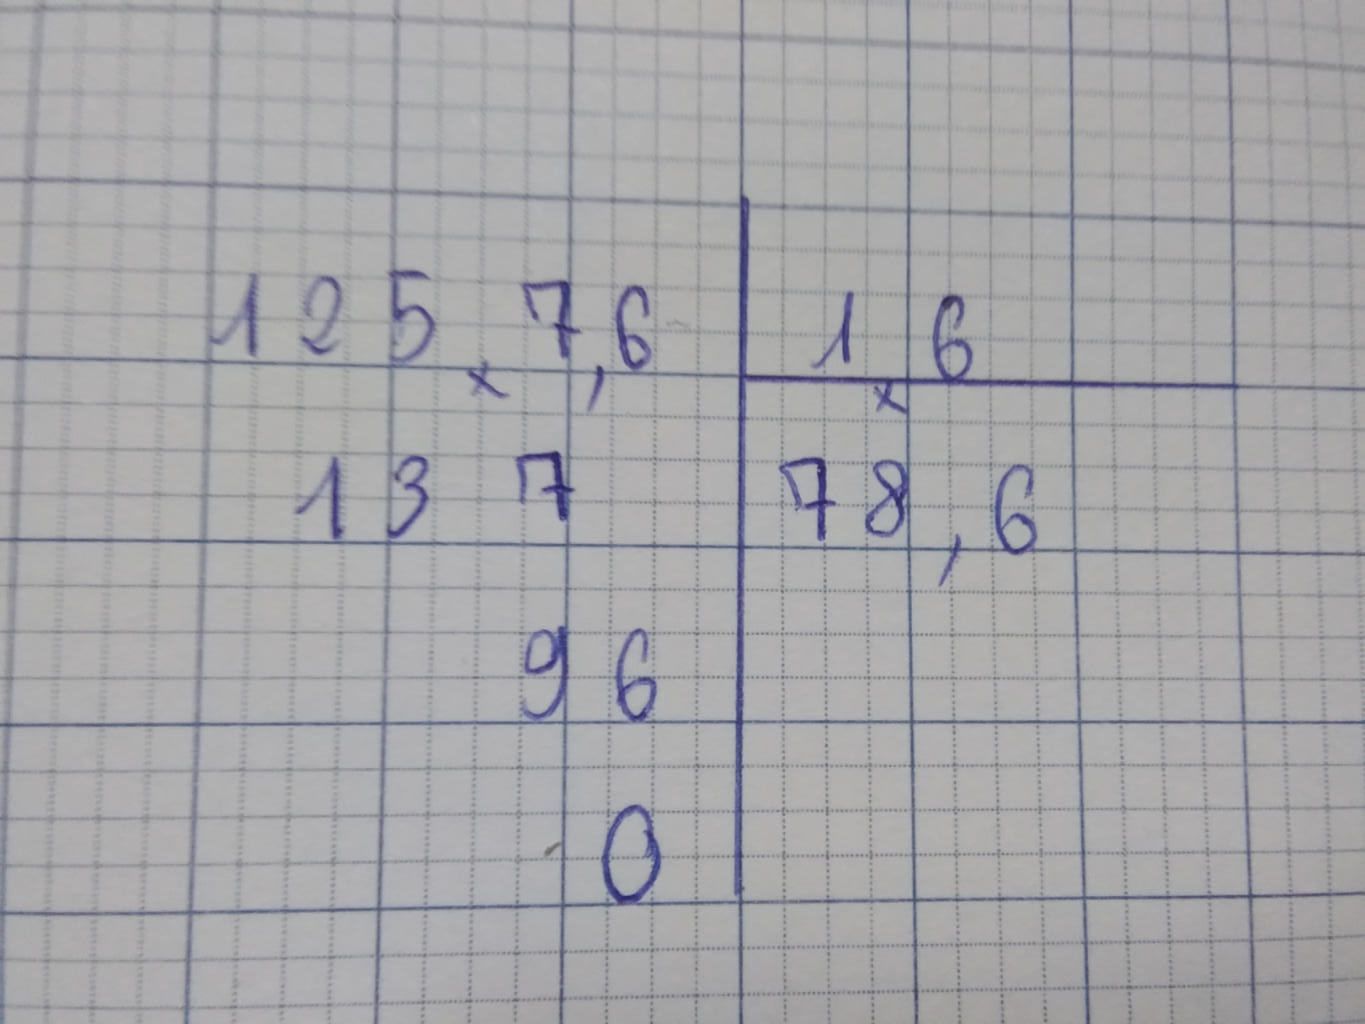 125×7,6 1×6
137 78,6
96
0